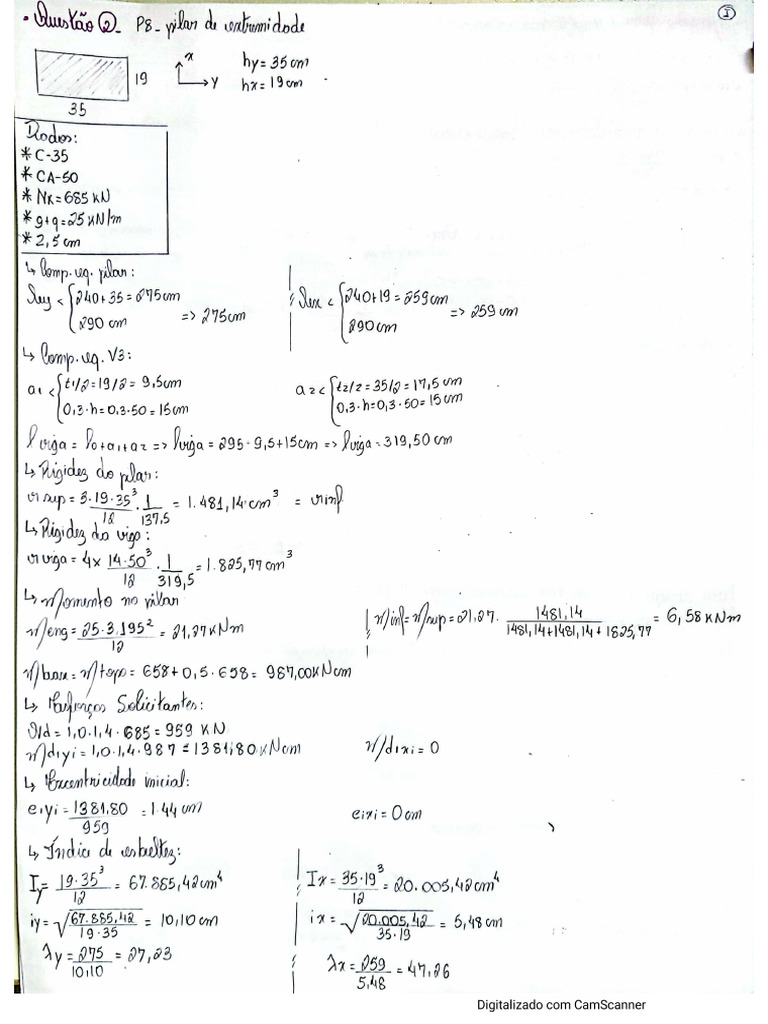 ①
• Questão ②- P8 - pilar de extremidade
x hy = 35 cm
19 y hx = 19 cm
35
Dados:
* C-35
* CA-50
* Nk = 685 KN
* g+q = 25 KN/m
* 2,5 cm
↳ Comp. eq. pilar:
ley < { 240 + 35 = 275 cm
290 cm => 275 cm
lex < { 240 + 19 = 259 cm
290 cm => 259 cm
↳ Comp. eq. V3:
a1 < { t1/2 = 19/2 = 9,5 cm
0,3·h = 0,3·50 = 15 cm
a2 < { t2/2 = 35/2 = 17,5 cm
0,3·h = 0,3·50 = 15 cm
l viga = l0 + a1 + a2 => l viga = 295 + 9,5 + 15 cm => l viga = 319,50 cm
↳ Rigidez do pilar:
r sup = 3·19·35³/12 · 1/137,5 = 1.481,14 cm³ = r inf
↳ Rigidez da viga:
r viga = 4 x 14·50³/12 · 1/319,5 = 1.825,77 cm³
↳ Momento no pilar
Meng = 25·3.195²/12 = 21,27 KNm
Minf = Msup = 21,27 · 1481,14/1481,14+1481,14+1825,77 = 6,58 KNm
Mbase = Mtopo = 658 + 0,5·658 = 987,00 KNcm
↳ Esforços Solicitantes:
Nd = 1,0·1,4·685 = 959 KN
Md1yi = 1,0·1,4·987 = 1381,80 KNcm
Md1xi = 0
↳ Excentricidade inicial:
e1yi = 1381,80/959 = 1.44 cm
e1xi = 0 cm
↳ Índice de esbeltez:
Iy = 19·35³/12 = 67.885,42 cm⁴
iy = √67.885,42/19·35 = 10,10 cm
λy = 275/10,10 = 27,23
Ix = 35·19³/12 = 20.005,42 cm⁴
ix = √20.005,42/35·19 = 5,48 cm
λx = 259/5,48 = 47,26
Digitalizado com CamScanner